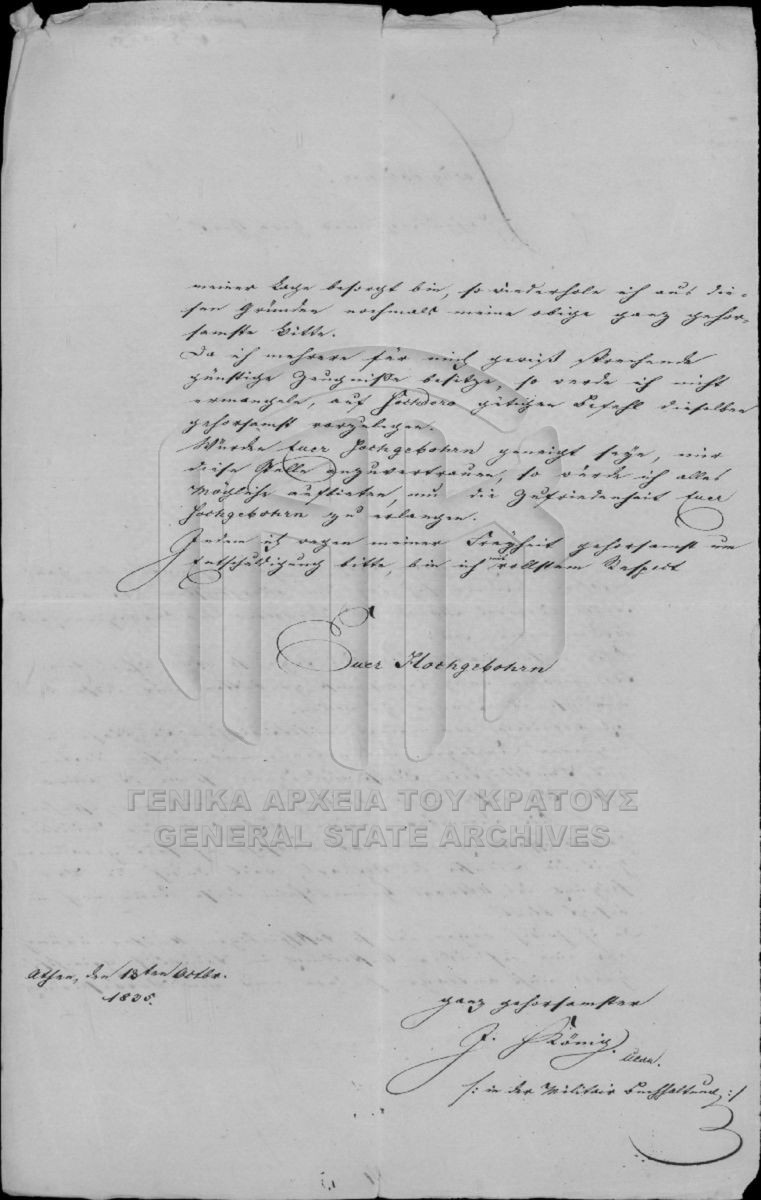 meiner Lage besorgt bin, so wiederhole ich aus die-
sen Gründen nochmals meine obige ganz gehor-
samste Bitte.
Da ich mehrere für mich gewiß sprechende
günstige Zeugniße besitze, so werde ich nicht
ermangeln, auf Hochdero gütigen Befehl dieselben
gehorsamst vorzulegen.
Würden Euer Hochgebohrn geneigt seyn, mir
diese Stelle anzuvertrauen, so würde ich alles
Mögliche aufbieten, um die Zufriedenheit Euer
Hochgebohrn zu erlangen.
Indem ich wegen meiner Freyheit gehorsamst um
Entschuldigung bitte, bin ich mit vollstem Respect
Euer Hochgebohrn
ΓΕΝΙΚΑ ΑΡΧΕΙΑ ΤΟΥ ΚΡΑΤΟΥΣ
GENERAL STATE ARCHIVES
Athen, den 13ten Octbr.
1835.
ganz gehorsamster
J. König
/: in der Militair Buchhaltung :/